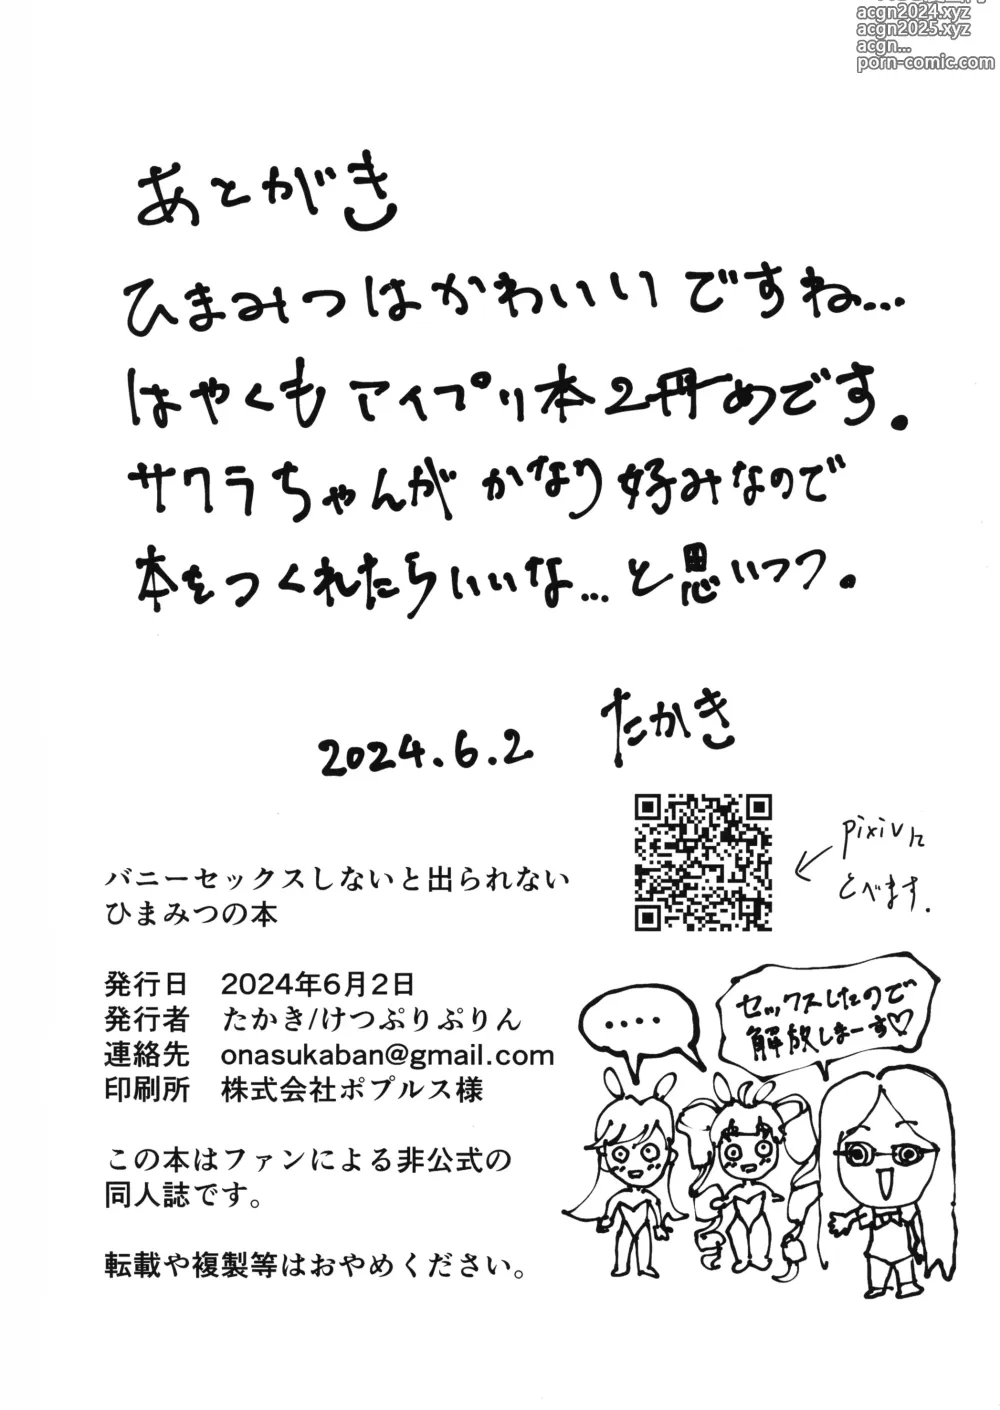 acgn2024.xyz
acgn2025.xyz
acgn...
porn-comic.com
あとがき
ひまみつはかわいいですね…
はやくもアイプリ本2冊めです。
サクラちゃんがかなり好みなので
本をつくれたらいいな…と思いつつ。
2024.6.2 たかき
pixivに
とべます.
バニーセックスしないと出られない
ひまみつの本
発行日 2024年6月2日
発行者 たかき/けつぷりぷりん
連絡先 onasukaban@gmail.com
印刷所 株式会社ポプルス様
この本はファンによる非公式の
同人誌です。
転載や複製等はおやめください。
....
セックスしたので
解放しまーす♡